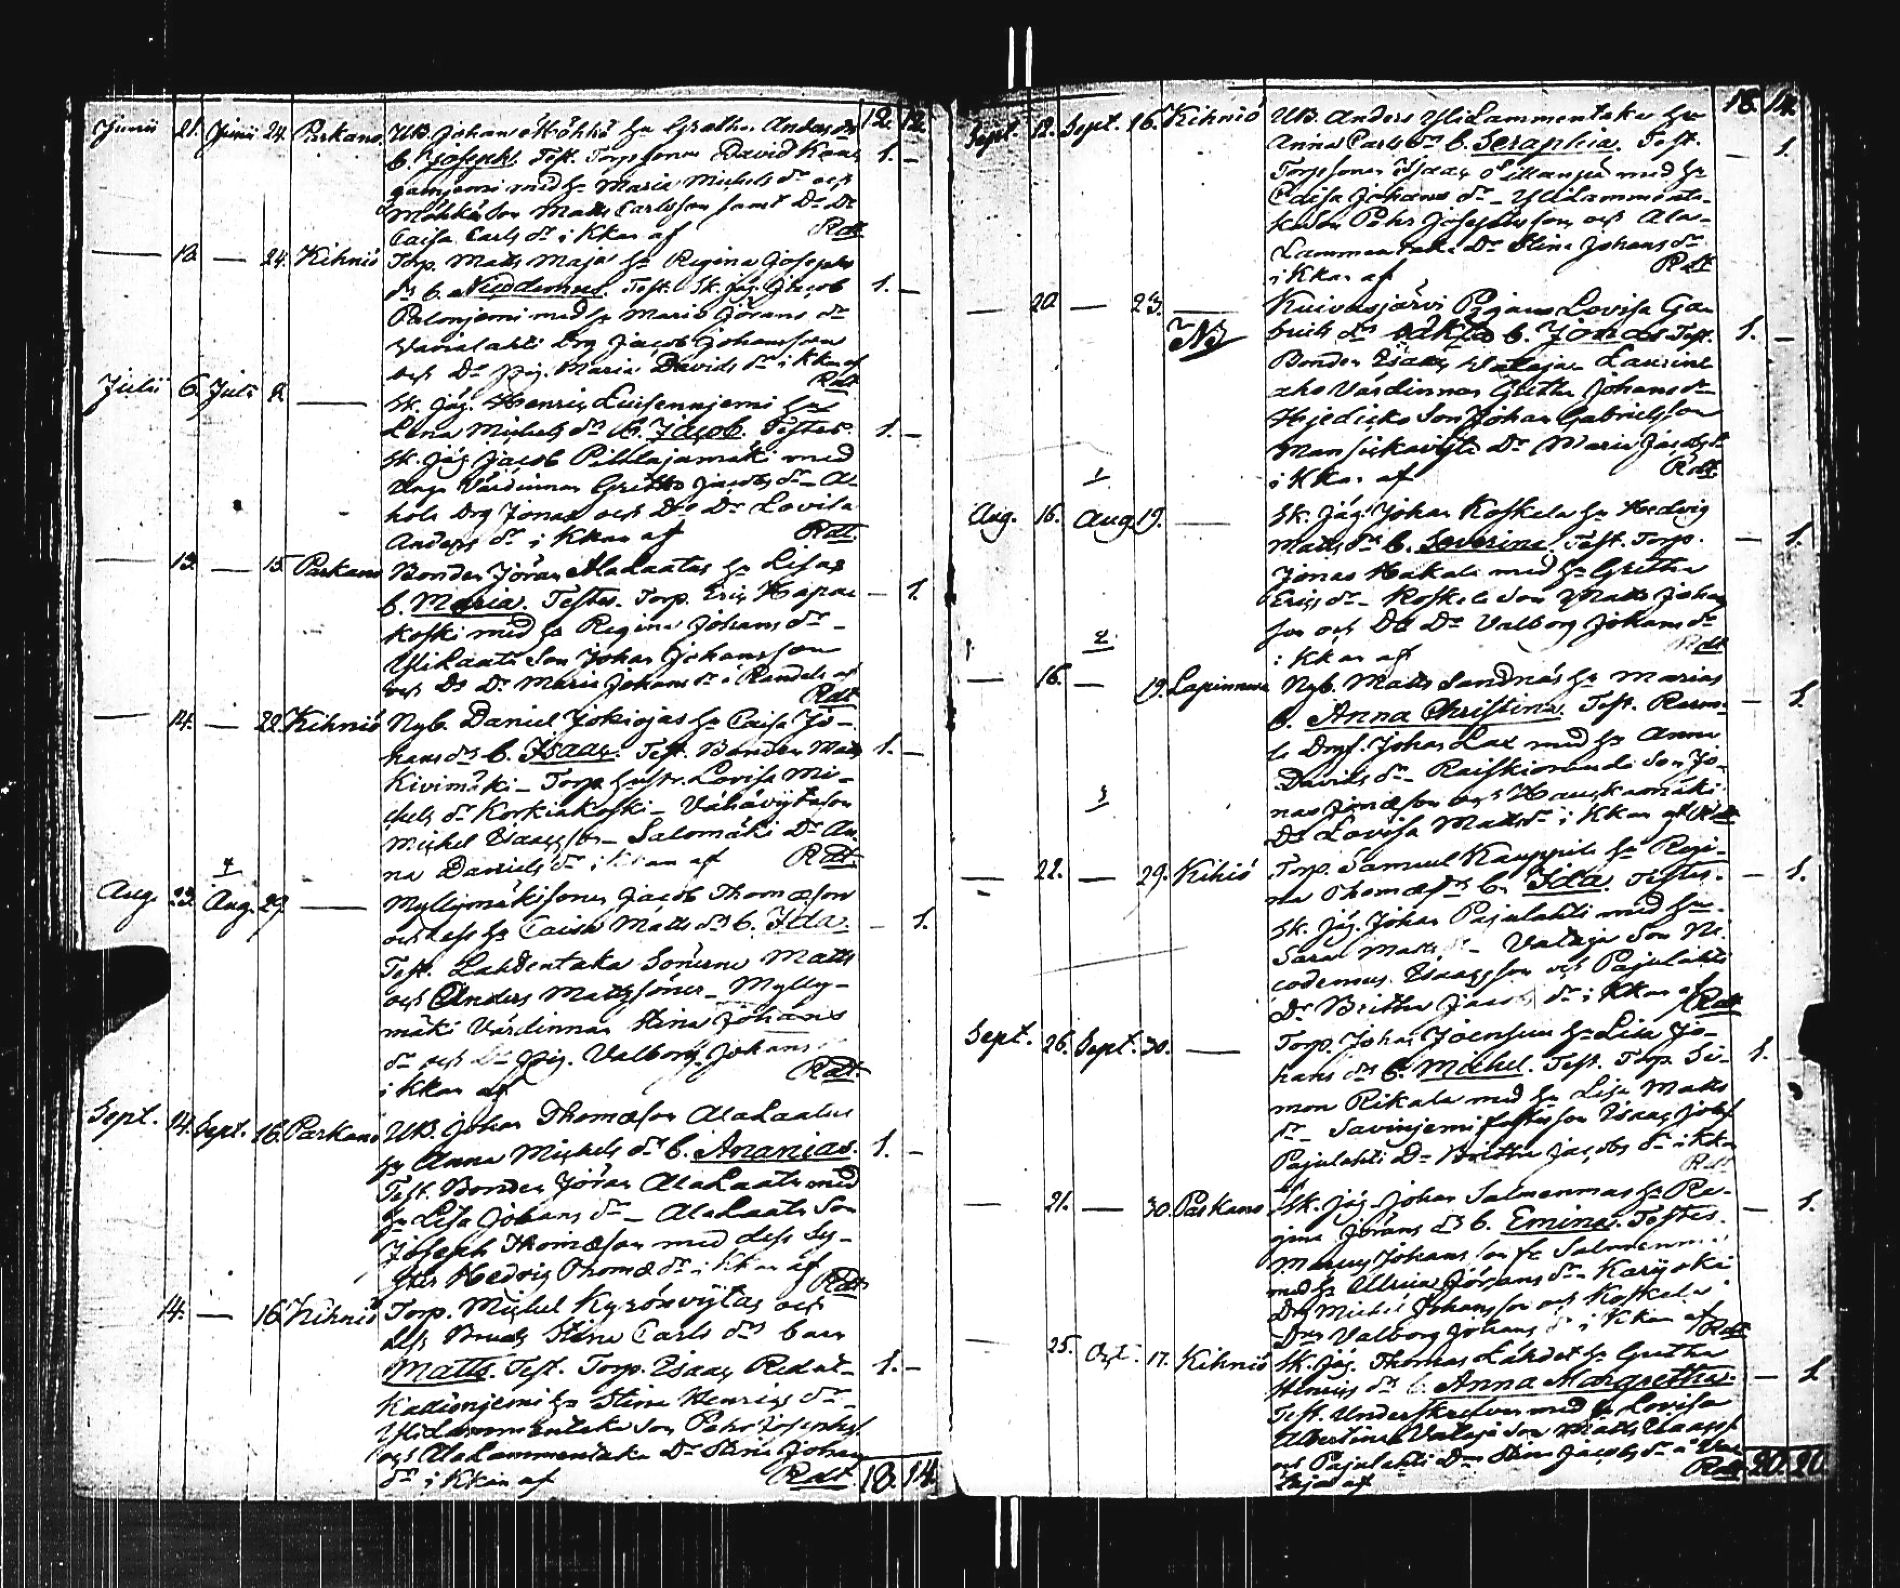 12. 12.
Junii 21. Junii 24. Parkano. UB. Johan Möhkö hu Gretha Anders dr
b. Joseph. Test. Torpsonen David Kan
ganjemi med hu Maria Michels dr och 1. –
Möhkö Son Matts Carlsson samt Do Dr
Caisa Carls dr i Kkan af Rdt.
— 18. — 24. Kihniö Torp. Matts Maja hu Regina Josephs
dr b. Nicodemus. Test. Sk. jäg. Jacob 1. –
Palonjemi med hu Maria Jörans dr
Drg Jacob Johansson
och Do pig. Maria Davids dr i Kkan af
Rdt.
Julii 6. Julii 8. — Sk. jäg. Henric Luisennjemi hu
Lena Michels dr b. Jacob. Testes. 1. –
Sk. jäg Jacob Pihlajamäki med
unga Värdinnan Gretha Jacobs dr – A-
hole Drg Jonas och Do Dr Lovisa
Anders dr i Kkan af Rdt.
— 13. — 15. Parkano Bonden Jöran AlaLaatus hu Lisas
b. Maria. Testes. Torp. Eric Hapua – 1.
koski med hu Regina Johans dr –
YliLaati Son Johan Johansson
och Do Dr Maria Johans dr i Kandele af
Rdt.
— 14. — 22. Kihniö Nyb. Daniel Jokiojas hu Caisa Jo-
hans dr b. Isaac. Test. Bonden Matts 1. –
Kivimäki – Torp. hustr. Lovisa Mi-
chels dr Korkiakoski – Vähäviytason
Michel Isaacsson – Salomäki Dr An
na Daniels dr i Kkan af Rdt.
Aug. 23. Aug. 29. — Myllymäkisonen Jacob Thomæson
och dess hu Caisa Matts dr b. Ida. – 1.
Test. Lahdentaka Sönerne Matts
och Anders Mattssöner – Mylly-
mäki Värdinnan Stina Johans
dr och Do pig. Valborg Johans
i Kkan af Rdt.
Sept. 14. Sept. 16. Parkano UB. Johan Thomæson AlaLaatus
hu Anna Michels dr b. Ananias. 1. –
Test. Bonden Jöran AlaLaati med
hu Lisa Johans dr – AlaLaati Son
Joseph Thomæson med dess Sy-
ster Hedvig Thomæ dr i Kkan af Rdt.
14. — 16. Kihniö Torp. Michel Kyrönviytas och
dess Brud Stina Carls drs barn
Matts. Test. Torp. Isaac 1. –
Kadionjemi hu Stina Henrics dr –
YliLammentaka Son Pehr Josephss.
och AlaLammentaka Dr Stina Johans
dr i Kkan af Rdt. 18. 14.
18. 14.
Sept. 12. Sept. 16. Kihniö UB. Anders YliLammentaka hu
Anna Carls dr b. Seraphia. Test. – 1.
Torpsonen Isaac med hu
Caisa Johans dr – YliLammenta-
ka Son Pehr Josephsson och Ala-
Lammentaka Dr Stina Johans dr
i Kkan af Rdt.
— 20. — 23. — Kuivasjärvi Pigans Lovisa Ga-
NB briels drs oäkta b. Jonas Test. 1. –
Bonden Isaac Vatajas Laurine
aho Värdinnan Gretha Johans dr
Hjedicko Son Johan Gabrielsson
Mansickaviyta Dr Maria Jacobs dr
i Kkan af Rdt.
1
Aug. 16. Aug. 19. — Sk. jäg. Johan Koskela hu Hedvig
Matts dr b. Severina. Test. Torp. – 1.
Jonas Hakala med hu Gretha
Erics dr – Koskela Son Matts Johans
son och Do Dr Valborg Johans dr
i Kkan af Rdt.
2
— 16. — 19. Lapinneva Nyb. Matts Sandnäs hu Marias
b. Anna Christina. Test. – 1.
Johan Lax med hu Anna
Davids dr – Son Jo-
nas Jonæson och Hauskamäki
Dr Lovisa Matts dr i Kkan af Rdt.
3
— 22. — 29. Kihniö Torp. Samuel Kauppila hu Regi-
na Thomæ dr b. Ida. Testes. – 1.
Sk. jäg. Johan Pajulahti med hu
Sara Matts dr – Vataja Son Ni-
codemus Isaacsson och Pajulahti
Dr Britha Jacobs dr i Kkan af Rdt.
Sept. 26. Sept. 30. — Torp. Johan Joensuu hu Lisa Jo-
hans dr b. Michel. Test. Torp. Si- 1.
mon Rikala med hu Lisa Matts
dr – Savinjemi fosterson Isaac Johss.
Pajulahti Dr Britha Jacobs dr i Kkan
af Rdt.
— 21. — 30. Parkano Sk. jäg. Johan Salmenmas hu Re-
gina Jörans dr b. Emina. Testes. – 1.
Johansson fr Salmenm
med hu Ullrica Jörans dr – Karjoski
Drg Michel Johansson och Koskela
Drn Valborg Johans dr i Kkan af Rdt.
— 25. Oct. 17. Kihniö Sk. jäg. Thomas Lähdet hu Gretha
Henrics dr b. Anna Margretha. – 1.
Test. Underskrefven med hu Lovisa
Albertina Vataja Son Matts Isaacss.
och Pajulahti Drn Stina Jacobs dr
af Rdt. 20. 20.